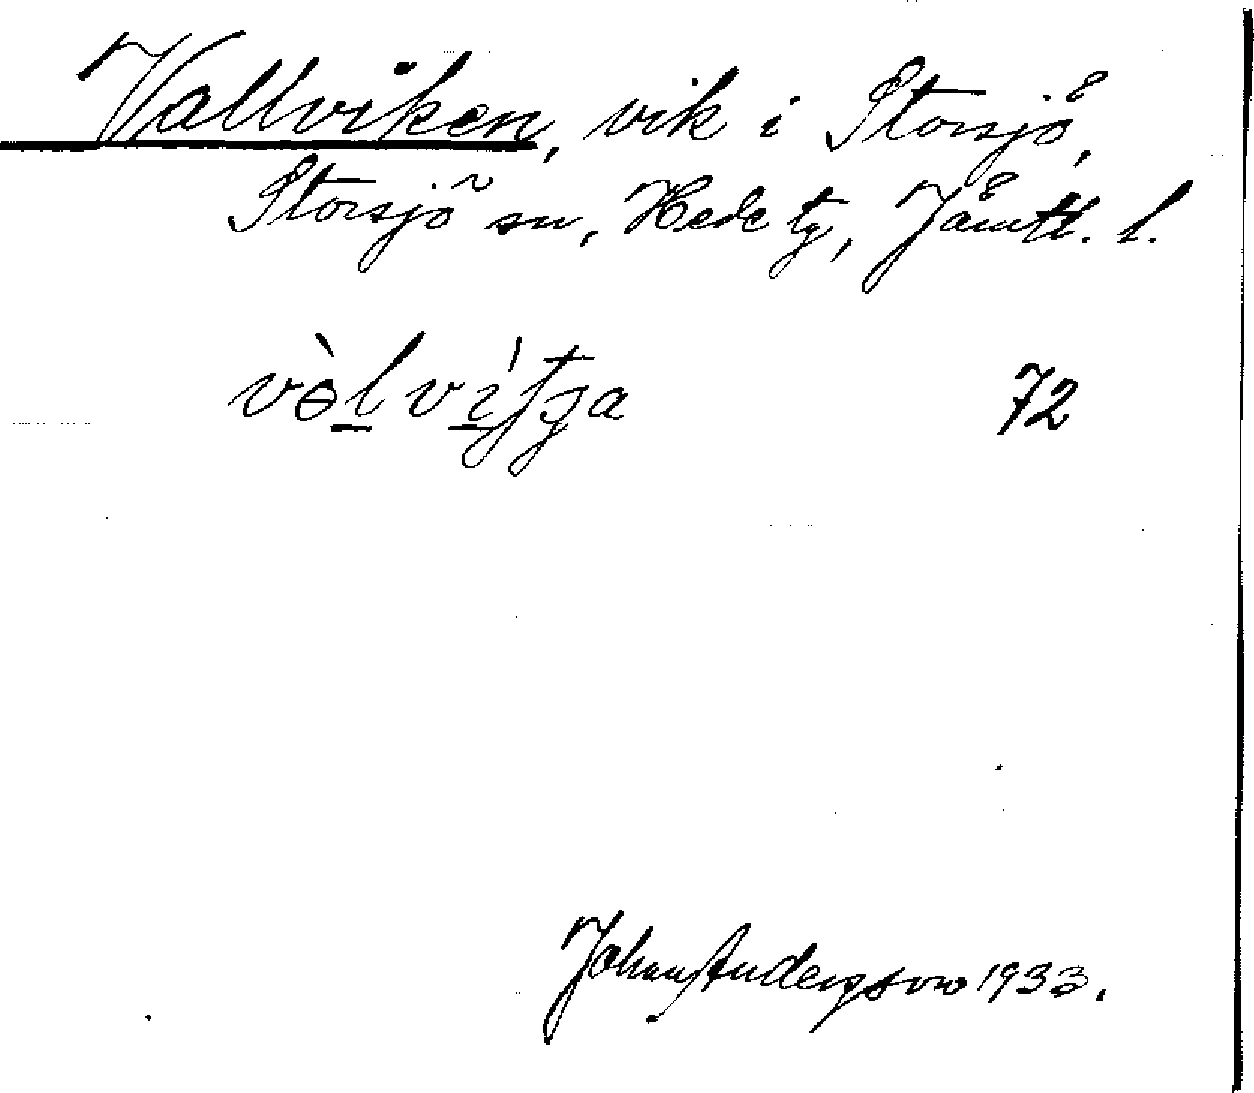 Vallviken, vik i Storsjö,
Storsjö sn, Hede tg, Jämtl. l.
72
Johan Anderson 1933.